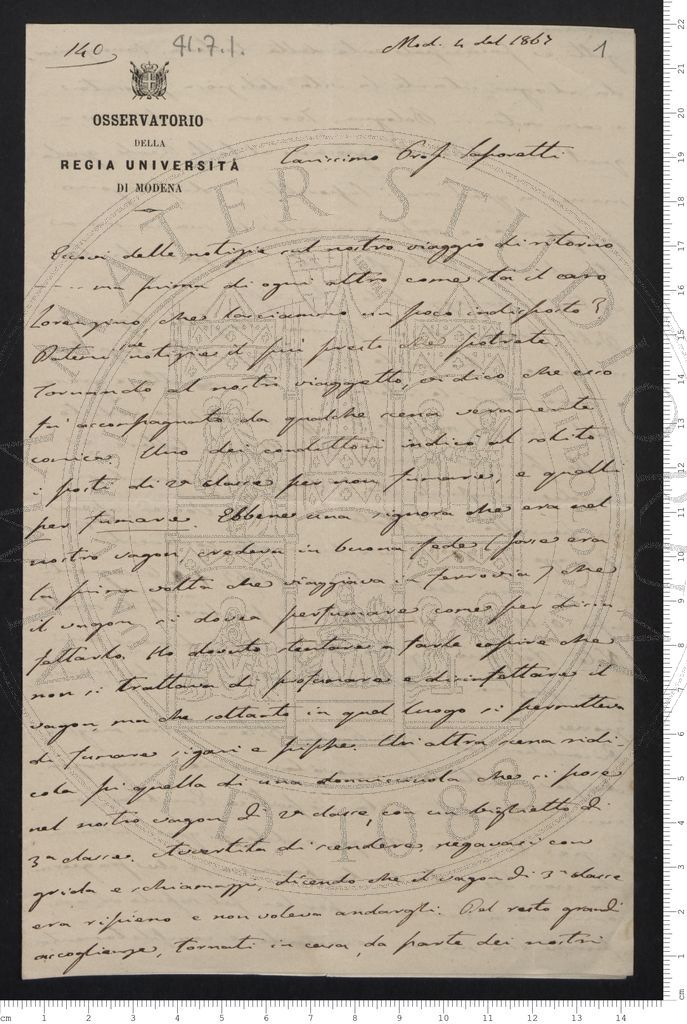 140
41.7.1.
Mod. 4 del 1867
1
OSSERVATORIO
DELLA
REGIA UNIVERSITÀ
DI MODENA
Carissimo Prof. Saporetti
Eccovi delle notizie sul nostro viaggio di ritorno
.... ma prima di ogni altro come sta il caro
Lorenzino, che lasciammo un poco indisposto?
Datemi notizie il più presto che potrete.
Tornando al nostro viaggetto, vi dico che esso
fu accompagnato da qualche scena veramente
comica. Uno dei conduttori indicò al solito
i posti di 2a classe per non fumare, e quelli
per fumare. Ebbene una signora che era nel
nostro vagon credeva in buona fede (forse era
la prima volta che viaggiava in ferrovia) che
il vagon si dovea perfumare come per disin
fettarlo. Ho dovuto stentare a farle capire che
non si trattava di profumare e disinfettare il
vagon, ma che soltanto in quel luogo si permetteva
di fumare sigari e pipe. Un altra scena ridi-
cola fu quella di una donnicciuola che si pose
nel nostro vagon di 2a classe, con un biglietto di
3a classe. Avvertita di scendere, negavasi con
grida e schiamazzi, dicendo che il vagon di 3a classe
era ripieno e non voleva andargli. Del resto grandi
accoglienze, tornati in casa, da parte dei nostri
ALMA MATER STUDIORUM
A.D. 1088
cm 1 2 3 4 5 6 7 8 9 10 11 12 13 14
22
21
20
19
18
17
16
15
14
13
12
11
10
9
8
7
6
5
4
3
2
1
cm